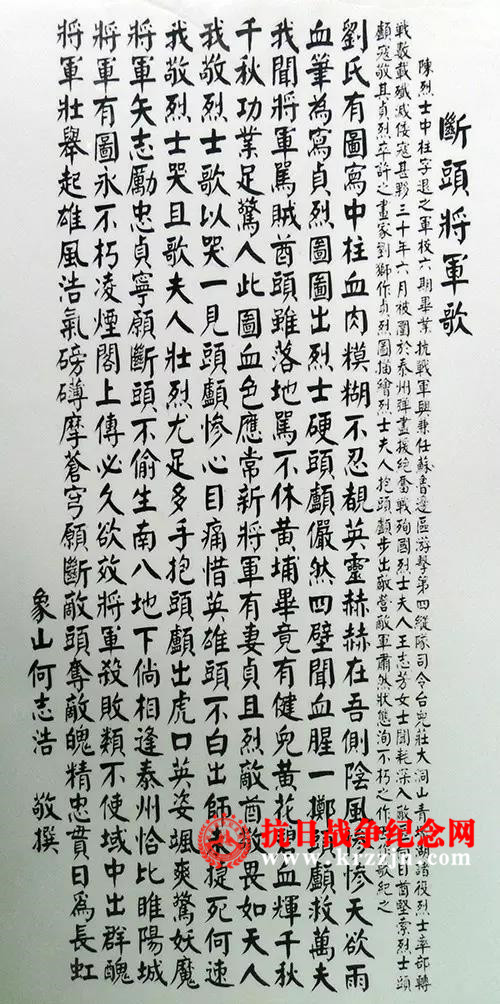 斷頭將軍歌
陳烈士中柱字退之軍校六期畢業抗戰軍興兼任蘇魯邊區游擊第四縱隊司令台兒莊大洞山青湖諸役烈士率部轉
戰數載殲滅倭寇甚夥三十年六月被圍於泰州彈盡援絕奮戰殉國烈士夫人王志芳女士聞耗深入敵向日酋堅索烈士頭
顱寇敬其貞烈卒許之畫家劉獅作貞烈圖描繪烈士夫人抱頭顱步出敵營敵軍肅然狀態洵不朽之作歌紀之
劉氏有圖寫中柱血肉糢糊不忍覩英靈赫赫在吾側陰風慘天欲雨
血筆為寫貞烈圖圖出烈士硬頭顱儼然四壁聞血腥一擲頭顱救萬夫
我聞將軍罵賊酋頭雖落地罵不休黃埔畢竟有健兒黃花碧血輝千秋
千秋功業足驚人此圖血色應常新將軍有妻貞且烈敵酋敬畏如天人
我敬烈士歌以哭一見頭顱慘心目痛惜英雄頭不白出師未捷死何速
我敬烈士哭且歌夫人壯烈尤足多手抱頭顱出虎口英姿颯爽驚妖魔
將軍矢志勵忠貞寧願斷頭不偷生南八地下倘相逢泰州恰比睢陽城
將軍有圖永不朽凌煙閣上傳必久欲效將軍殺敗類不使域中出群醜
將軍壯舉起雄風浩氣磅礡摩蒼穹願斷敵頭奪敵魄精忠貫日為長虹
象山何志浩 敬撰
抗日战争纪念网
www.krzzjn.com